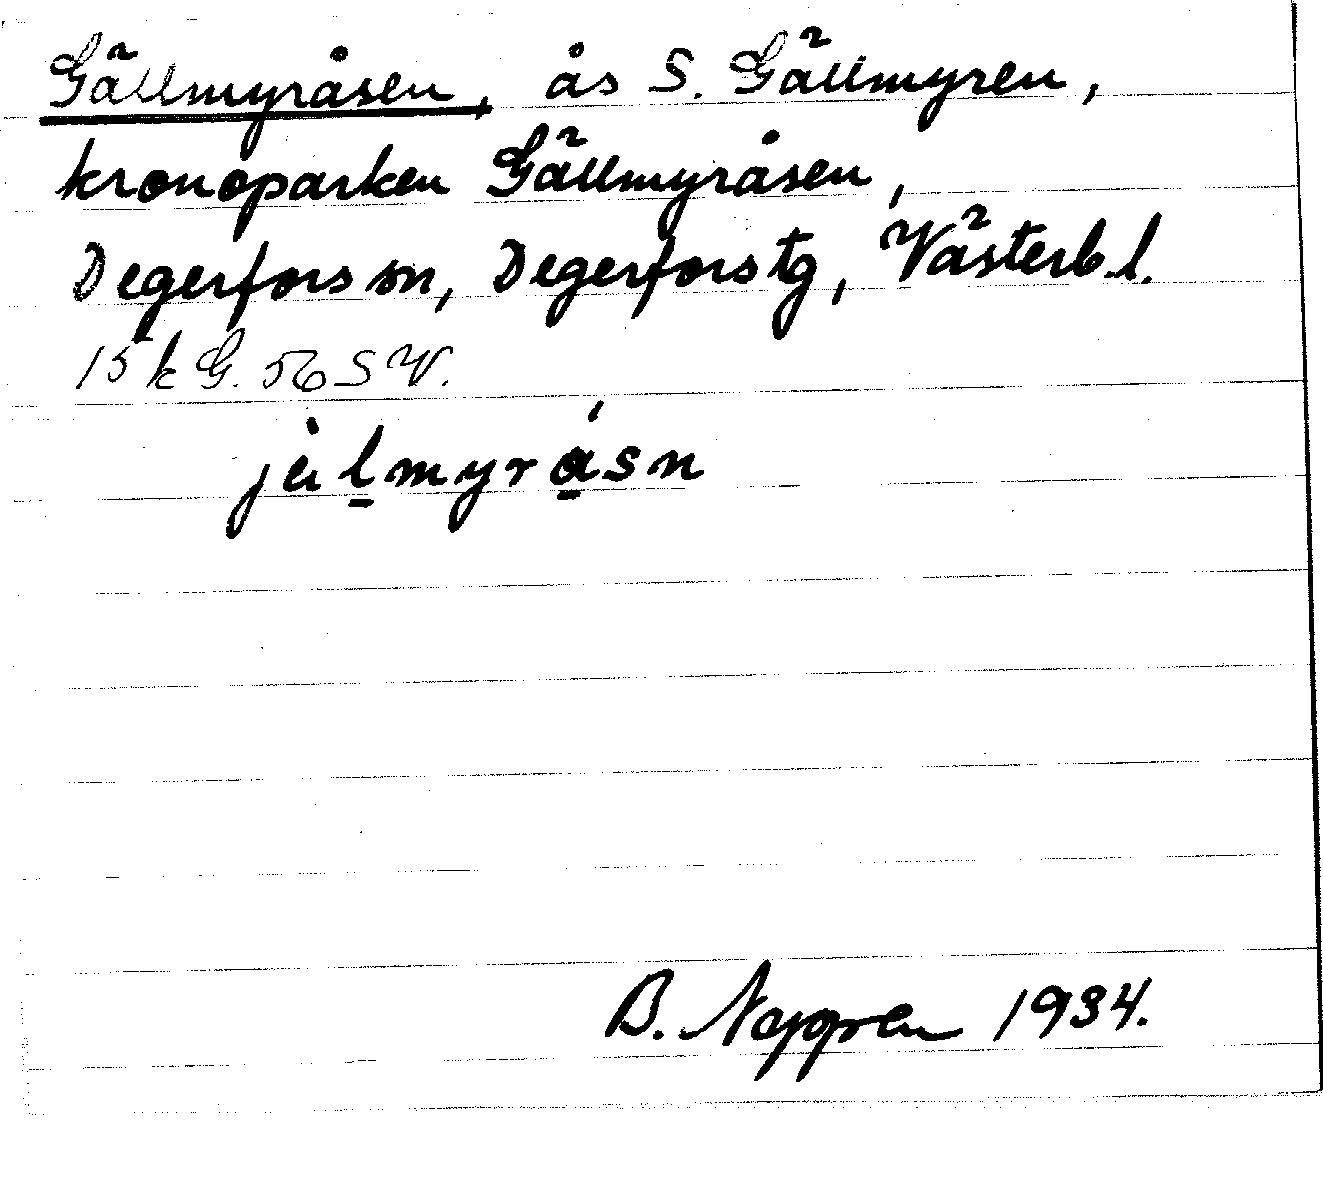 Gällmyråsen, ås S. Gällmyren,
kronoparken Gällmyråsen,
Degerfors sn, Degerfors tg, Västerb.l.
15 k G. 56 SV.
jälmyråsn
B. 1934.